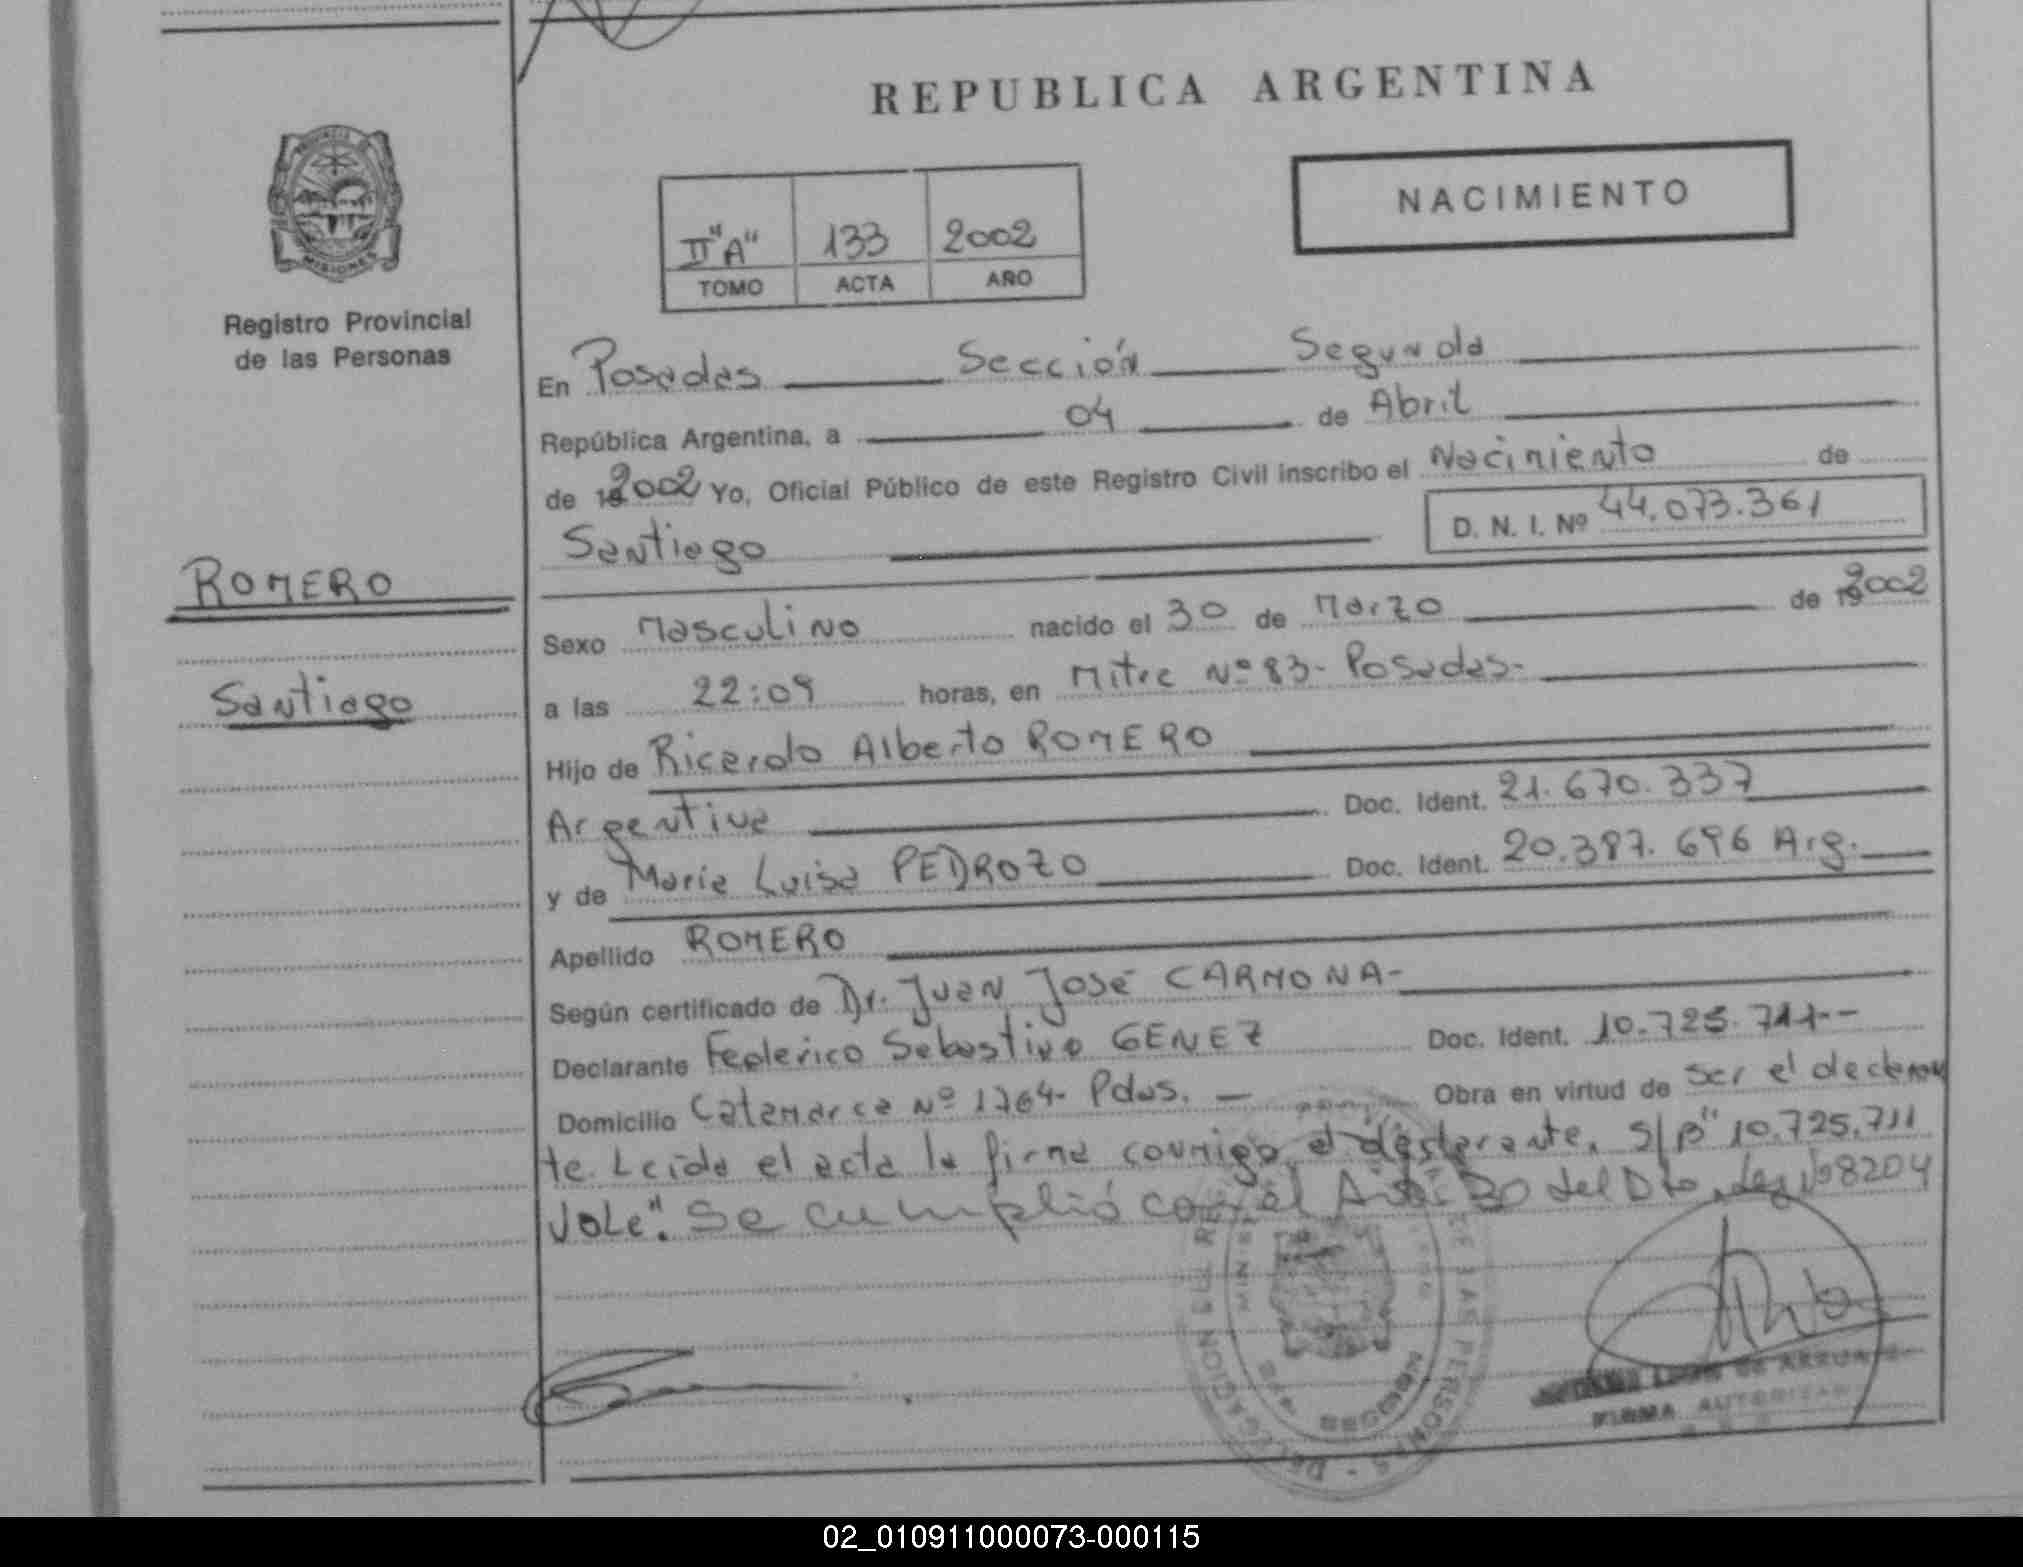 REPUBLICA ARGENTINA
NACIMIENTO
II"A" 133 2002
TOMO ACTA AÑO
MISIONES
Registro Provincial
de las Personas
En Posadas Sección Segunda
República Argentina, a 04 de Abril
de 2002 Yo, Oficial Público de este Registro Civil inscribo el Nacimiento de
Santiago D. N. I. Nº 44.073.361
ROMERO
Santiago
Sexo Masculino nacido el 30 de Marzo de 2002
a las 22:09 horas, en Mitre Nº 83- Posadas-
Hijo de Ricardo Alberto ROMERO
Argentina Doc. Ident. 21.670.337
y de Maria Luisa PEDROZO Doc. Ident. 20.387.696 Arg.
Apellido ROMERO
Según certificado de Dr. Juan José CARMONA-
Declarante Federico Sebastian GENEZ Doc. Ident. 10.725.711--
Domicilio Catamarca Nº 1764- Pdas. — Obra en virtud de ser el declaran
te. Leida el acta la firma conmigo el declarante. S/R" 10.725.711
Vale". Se cumplió con el Art. 30 del Dto. Ley 8204
DE LAS PERSONAS - DELEGACION
MISIONES
FIRMA AUTORIZADA
02_010911000073-000115